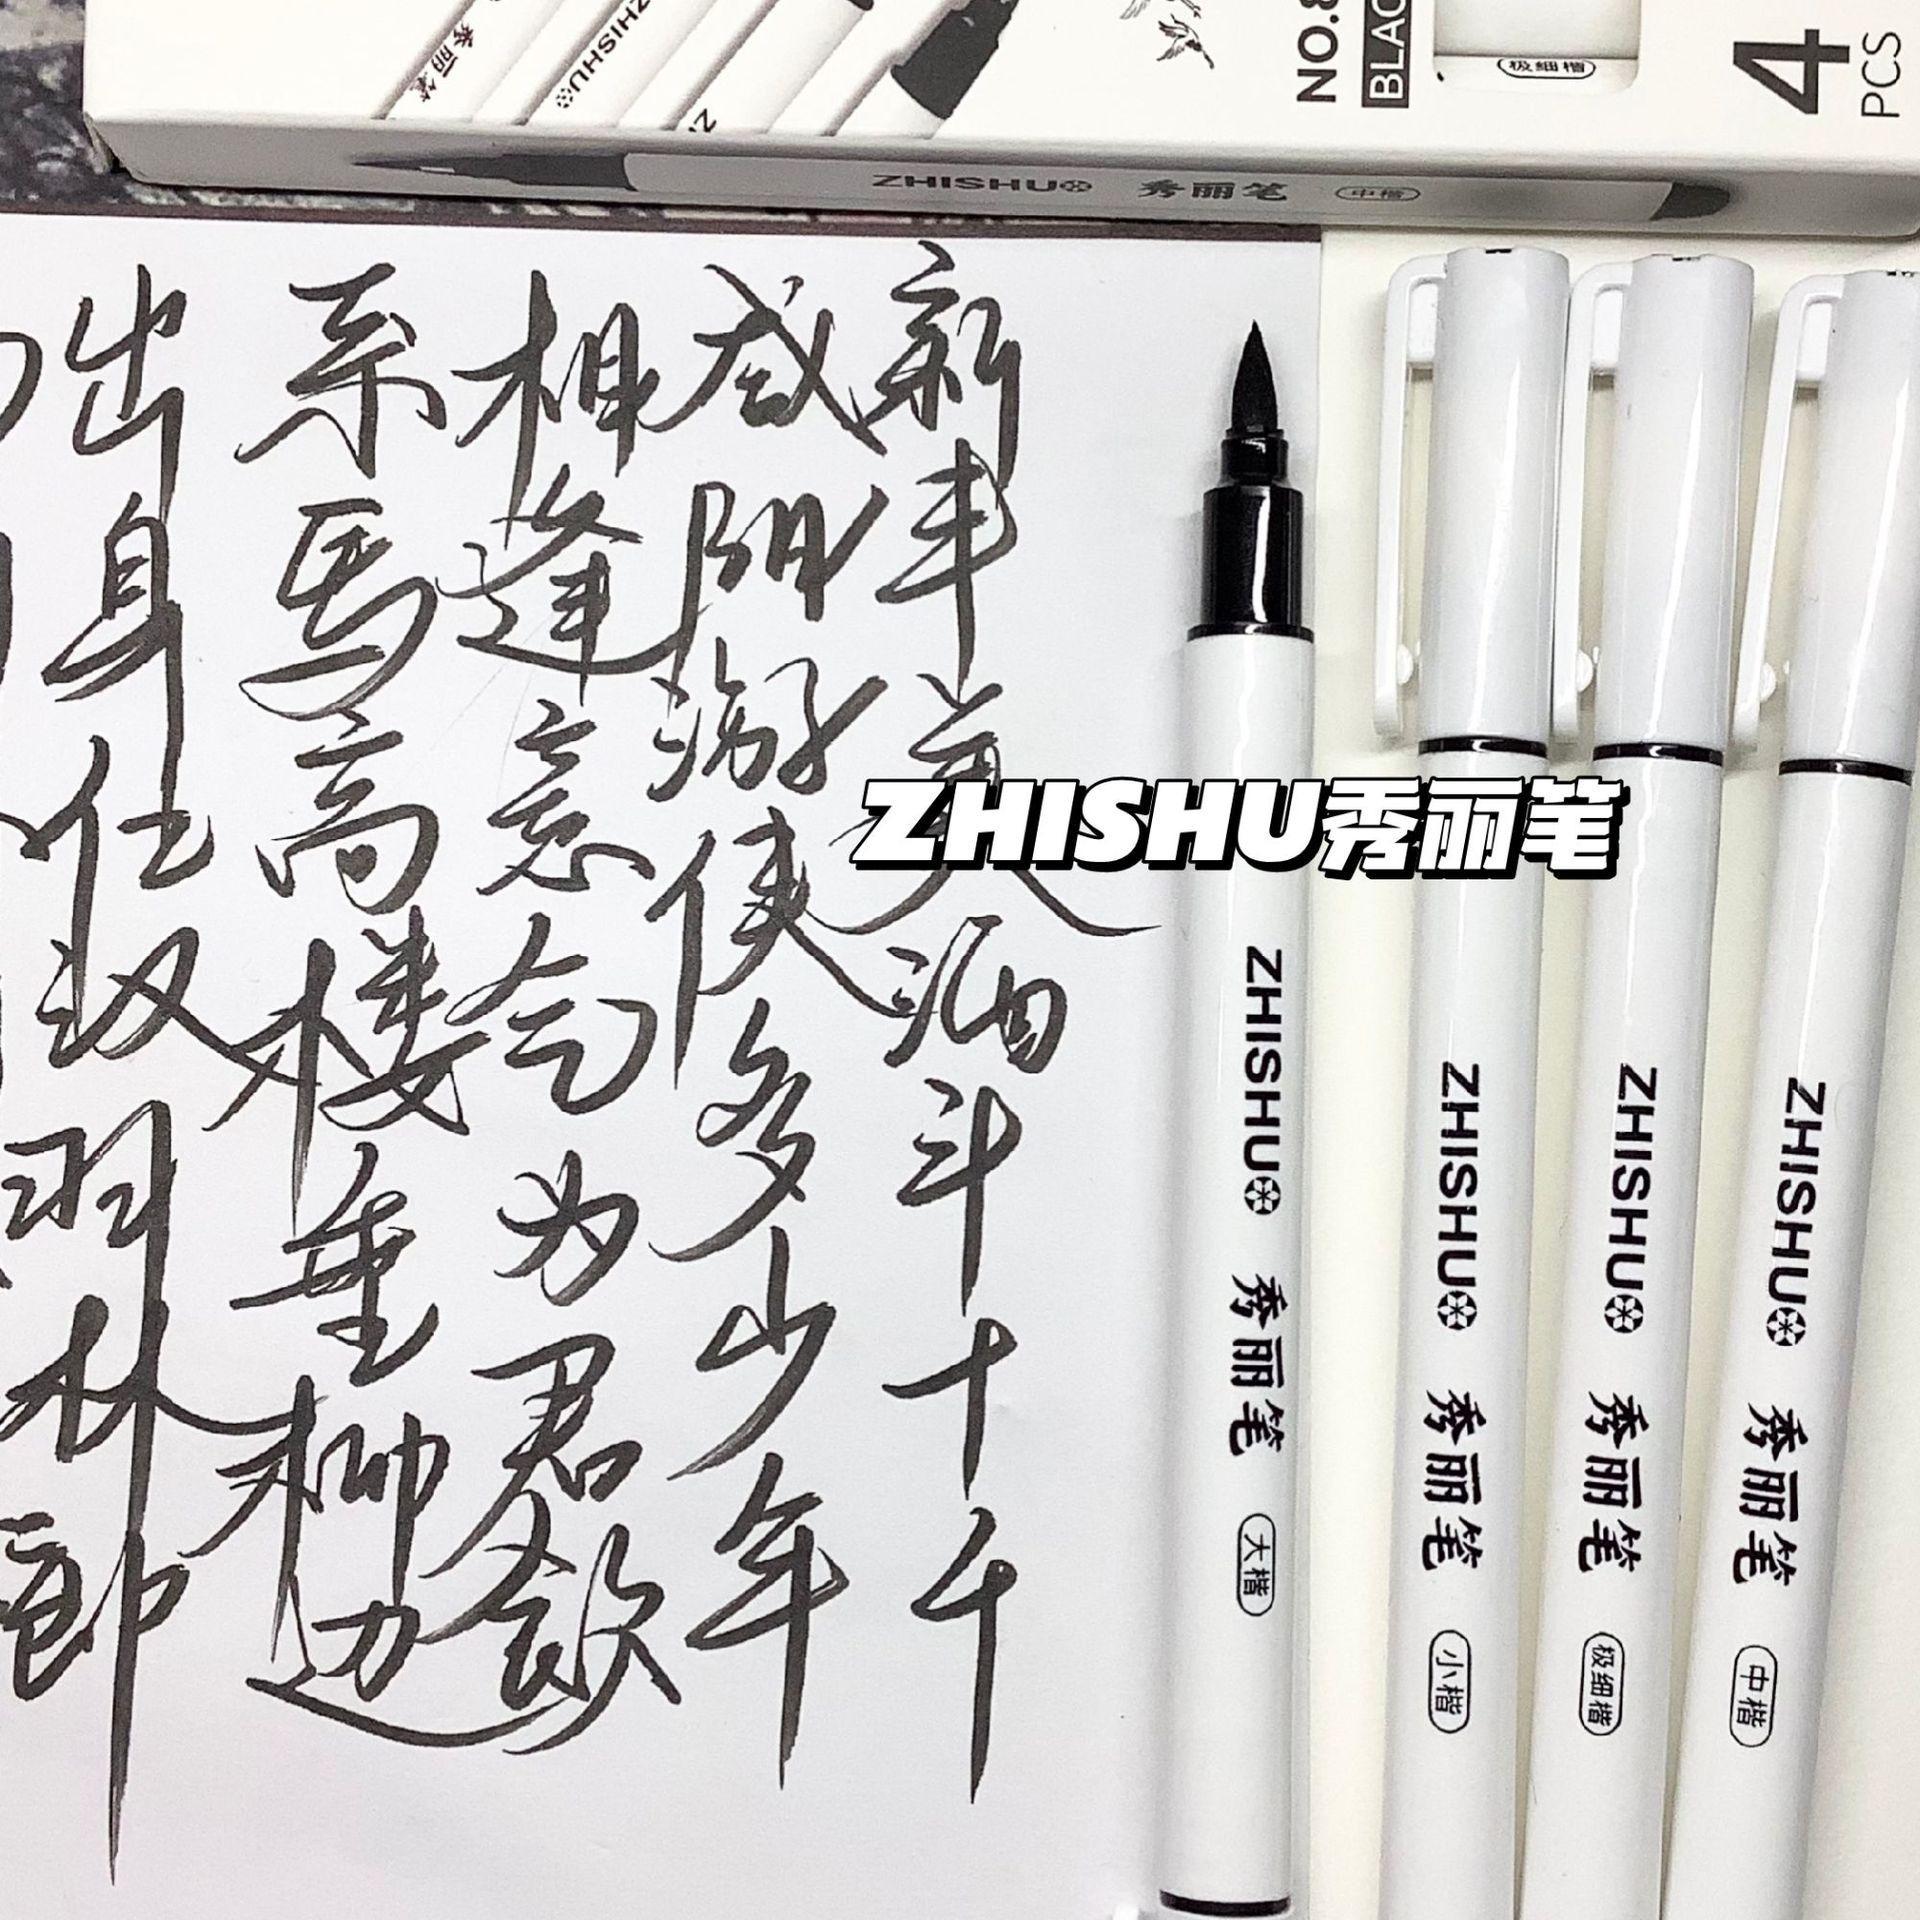 秀丽笔
ZHISHU
极细楷
4
PCS
ZHISHU 秀丽笔 中楷
新丰美酒斗十千
咸阳游侠多少年
相逢意气为君飲
系馬高楼垂柳边
出身仕汉羽林郎
ZHISHU秀丽笔
ZHISHU 秀丽笔 大楷
ZHISHU 秀丽笔 小楷
ZHISHU 秀丽笔 极细楷
ZHISHU 秀丽笔 中楷